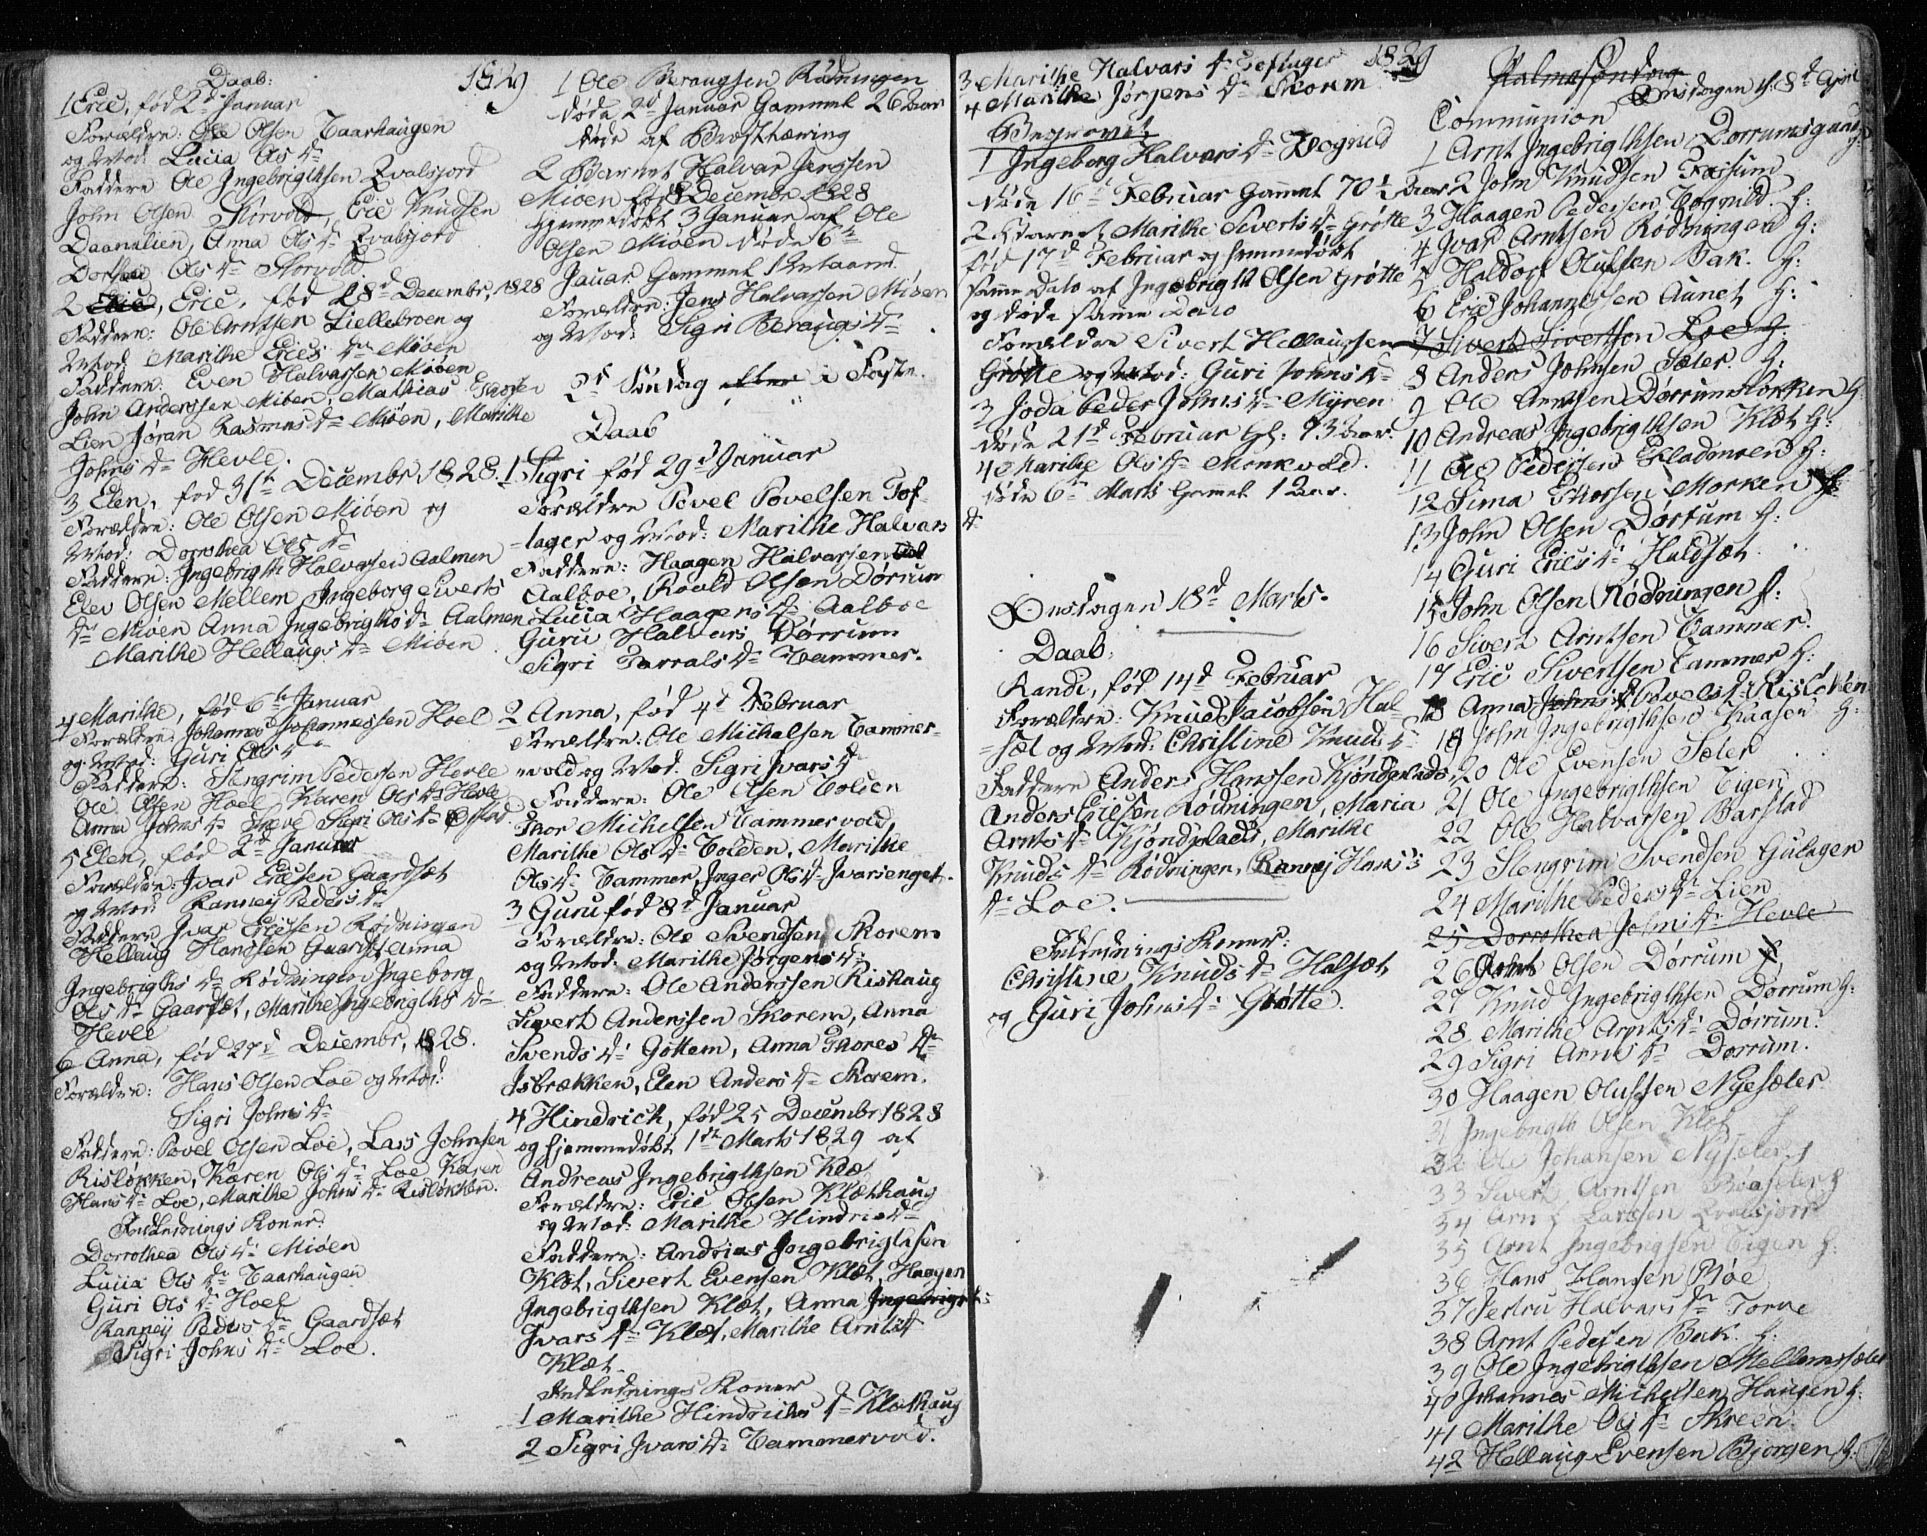 Daab: 1829
1 Eric, fød 2d Januar
Forældre: Ole Olsen Taarhaugen
og Mod: Lucia Ols Dr
Faddere Ole Ingebrigthsen Evalsjord
John Olsen Storvold, Eric Knudsen
Daanalien, Anna Ols Dr Evalsjord
Dorthea Ols Dr Storvold
2 Eric, Eric, fød 28d Decembr, 1828
Forældre: Ole Arntsen Liellebroen og
Mod Marithe Erics Dr Miøen
Faddere: Even Halvarsen Miøen
John Anderssen Miøen, Mathias
Lien Jøran Rasmus Dr Miøen, Marithe
Johns Dr Hevle.
3 Elen, fød 31te Decembr 1828.
Forældre: Ole Olsen Miøen og
Mod: Dorothea Ols Dr
Faddere: Ingebrigth Halvarsen Aalmen
Elev Olsen Mellem Ingeborg Siverts
Dr Miøen Anna Ingebrigths Dr Aalmen
Marithe Hellaugs Dr Miøen
4 Marithe, fød 6te Januar
Forældre: Johannes Johannessen Hoel
og Mod: Guri Ols Dr
Faddere: Stengrim Pedersen Hevle
Ole Olsen Hoel Karen Ols Dr Hevle
Anna Johns Dr Hevle Sigri Ols Dr
5 Elen, fød 2d Januar
Forældre: Ivar Ericsen Gaardsæt
og Mod: Ranney Peders Dr
Faddere Ivar Ericsen Rødningen
Hellaug Hanssen Gaardsæt Anna
Ingebrigths Dr Rødningen Ingeborg
Ols Dr Gaarsæt, Marithe Ingebrigths Dr
Hevle
6 Anna, fød 27d Decembr, 1828.
Forældre: Hans Olsen Loe og Mod:
Sigri Johns Dr
Faddere: Povel Olsen Loe, Lars Johnsen
Risløkken, Karen Ols Dr Loe Karen
Hans Dr Loe, Marithe Johns Dr Risløkken.
Indlednings Koner:
Dorrothea Ols Dr Miøen
Lucia Ols Dr Taarhaugen
Guri Ols Dr Hoel
Ranney Peders Dr Gaardsæt
Sigri Johns Dr Loe.
1 Ole Beraugsen Rødningen
døde 2d Januar Gammel 26 Aar
døde af Brøsttæring
2 Barnet Halvar Jenssen
Miøen fød Decembr 1828
hjemmedøbt 3 Januar af Ole
Olsen Miøen døde 6te
Januar Gammel
Forældre: Jens Halvarsen Miøen
og Mod: Sigri Beraugs Dr
2d Søndag efter i Faste.
Daab
1 Sigri fød 29d Januar
Forældre Povel Povelsen Tof-
=lager og Mod: Marithe Halvars
Faddere: Haagen Halvarsen
Aalboe, Roald Olsen Dørrum
Lucia Haagens Dr Aalboe
Guru Halvars Dørrum
Sigri Tarrals Dr Tammer.
2 Anna, fød 4d Februar
Forældre: Ole Michelsen Tammer-
vold og Mod. Sigri Ivars Dr
Faddere: Ole Olsen Tolien
Thor Michelsen Tammervold
Marithe Ols Dr Tolden, Marithe
Ols Dr Tammer, Inger Ols Dr Ivarsenget.
3 Guru fød 8d Januar
Forældre: Ole Svendsen Skorem
og Mod: Marithe Jørgens Dr
Faddere: Ole Anderssen Rishaug
Sivert Anderssen Skorem, Anna
Svends Dr Gottem, Anna Thores Dr
Isbrækken, Elen Anders Dr Skorem.
4 Hindrich, fød 25 Decembr 1828
og hjemmedøbt 1te Marts 1829 af
Andreas Ingebrigthsen Klæt
Forældre: Eric Olsen Klæthaug
og Mod: Marithe Hindrics Dr
Faddere: Andreas Ingebrigthsen
Klæt, Sivert Evensen Klæt Haagen
Ingebrigthsen Klæt, Anna Ingebrigts
Ivars Dr Klæt, Marithe Arnts Dr
Klæt
Indlednings Koner
1 Marithe Hindrichs Dr Klæthaug
2 Sigri Ivars Dr Tammervold.
3 Marithe Halvars Dr 1829
4 Marithe Jørgens Dr Skorem
Begravet
1 Ingeborg Halvors Dr Vognild
døde 16te Februar Gammel 70 1/2 Aar
2 Barnet Marithe Siverts Dr Grøtte
fød 17d Februar og hjemmedøbt
samme Dato af Ingebrigth Olsen Grøtte
og døde samme Dato
Forældre Sivert Hellaugsen
Grøtte og Mod: Guri Johns Dr
3 Joda Peder Johns Dr Myren
døde 21d Februar Gl: 73 Aar.
4 Marithe Ols Dr Monkvold.
døde 6te Marts Gamel 1 Aar.
Onsdagen 18d Marts.
Daab:
Randi, fød 14d Februar
Forældre: Knud Jacobsen Hal-
=sæt og Mod: Christine Knuds Dr
Faddere Anders Hanssen Kjøndsplads,
Anders Ericsen Rødningen, Maria
Arnts Dr Kjøndsplads, Marithe
Knuds Dr Rødningen, Ranney Hans's
Dr Loe.
Indlednings Koner:
Christine Knuds Dr Halsæt
og Guri Johns Dr Grøtte.
Palmesøndag
Onsdagen d. 8d April
Communion
1 Arnt Ingebrigthsen Dørrumsgaard
2 John Knudsen Fossum
3 Haagen Pedersen Vognild. h:
4 Ivar Arntsen Rødningen h:
5 Haldor Olufsen Bak. h:
6 Eric Johannessen Aunet h:
7 Sivert Sivertsen Loe h:
8 Anders Johnsen Sæter. h:
9 Ole Arntsen Dørrumsløkken h
10 Andreas Ingebrigthsen Klæt h:
11 Ole Pedersen Gladsmoen h:
12 Sima Thorsen Morken
13 John Olsen Dørrum h:
14 Guri Erics Dr Haldsæt
15 John Olsen Rødningen h:
16 Sivert Arntsen Tammer.
17 Eric Sivertsen Tammer h:
18 Anna Johns Dr Povels Dr Risløkken
19 John Ingebrigthsen Kaasen h:
20 Ole Evensen Sæter
21 Ole Ingebrigthsen Tigen
22 Ole Halvarsen Barstad
23 Stengrim Svendsen Gulager
24 Marithe Peders Dr Lien
25 Dorrothea Johns Dr Hevle
26 John Olsen Dørrum
27 Knud Ingebrigthsen Dørrum h:
28 Marithe Arnts Dr Dørrum.
29 Sigri Arnts Dr Dørrum.
30 Haagen Olufsen Nyesæter
31 Ingebrigth Olsen Klæt h
32 Ole Johansen Nysæter h
33 Sivert Arntsen h
34 Arnt Larssen Evalsjord
35 Arnt Ingebrigsen Tigen h:
36 Hans Hansen Bøe
37 Jertru Halvars Dr Torve
38 Arnt Pedersen Bak. h:
39 Ole Ingebrigthsen Mellemsæter
40 Johannes Michelsen Haugen h:
41 Marithe Ols Dr Skreen
42 Hellaug Evensen Bjørgen h: